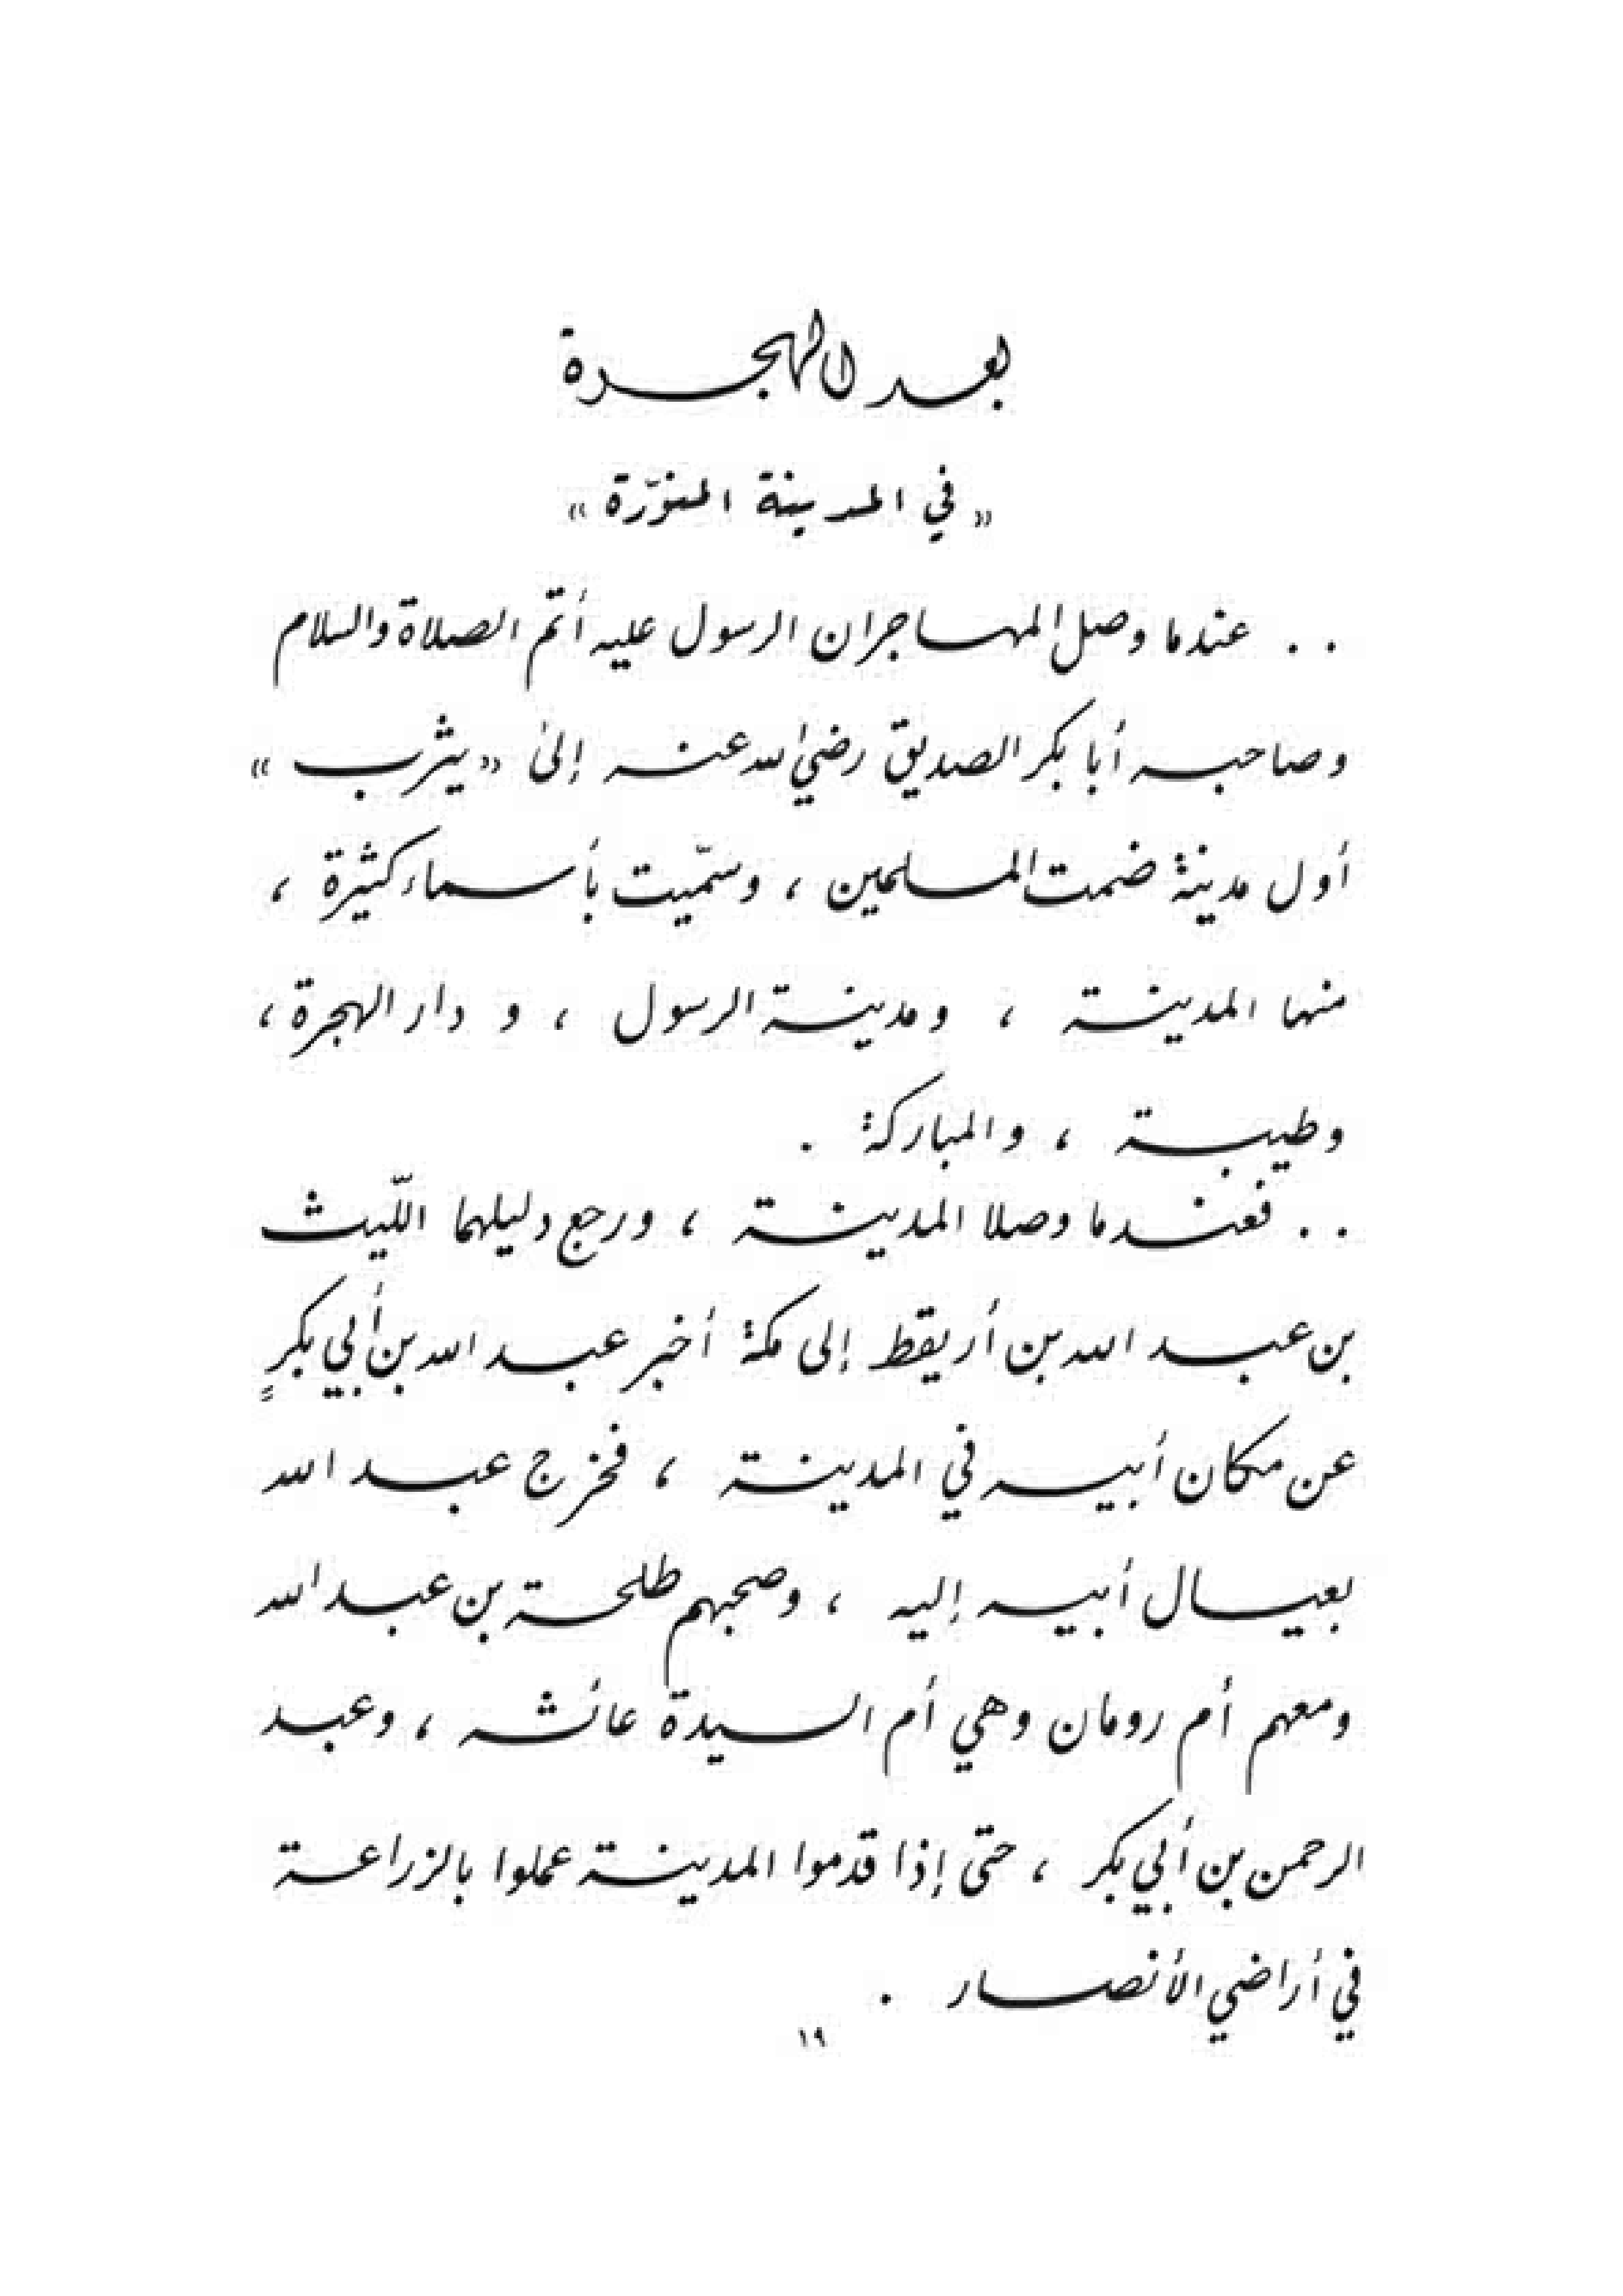 بعد الهجرة
« في المدينة المنوّرة »
. . عندما وصل المهاجران الرسول عليه أتم الصلاة والسلام
وصاحبه أبا بكر الصديق رضي الله عنه إلى « يثرب »
أول مدينة ضمت المسلمين ، وسمّيت بأسماء كثيرة ،
منها المدينة ، ومدينة الرسول ، و دار الهجرة ،
وطيبة ، والمباركة .
. . فعندما وصلا المدينة ، ورجع دليلهما اللّيث
بن عبد الله بن أريقط إلى مكة أخبر عبد الله بن أبي بكرٍ
عن مكان أبيه في المدينة ، فخرج عبد الله
بعيال أبيه إليه ، وصحبهم طلحة بن عبد الله
ومعهم أم رومان وهي أم السيدة عائشه ، وعبد
الرحمن بن أبي بكر ، حتى إذا قدموا المدينة عملوا بالزراعة
في أراضي الأنصار .
١٩